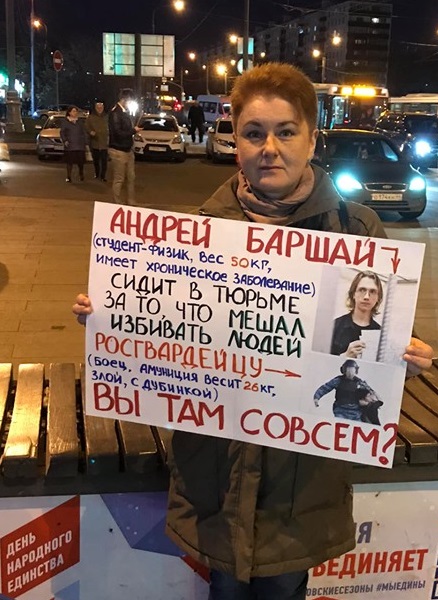 АНДРЕЙ БАРШАЙ
(СТУДЕНТ-ФИЗИК, ВЕС 50КГ,
ИМЕЕТ ХРОНИЧЕСКОЕ ЗАБОЛЕВАНИЕ)
СИДИТ В ТЮРЬМЕ
ЗА ТО, ЧТО МЕШАЛ
ИЗБИВАТЬ ЛЮДЕЙ
РОСГВАРДЕЙЦУ
(БОЕЦ, АМУНИЦИЯ ВЕСИТ 26КГ,
ЗЛОЙ, С ДУБИНКОЙ)
ВЫ ТАМ СОВСЕМ?
ДЕНЬ
НАРОДНОГО
ЕДИНСТВА
ЪЕДИНЯЕТ
ОВСКИЕСЕЗОНЫ #МЫЕДИНЫ